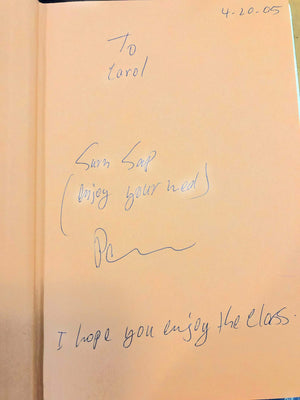 4-20-05
To
Carol
Sam Sap
(enjoy your
I hope you enjoy the class.